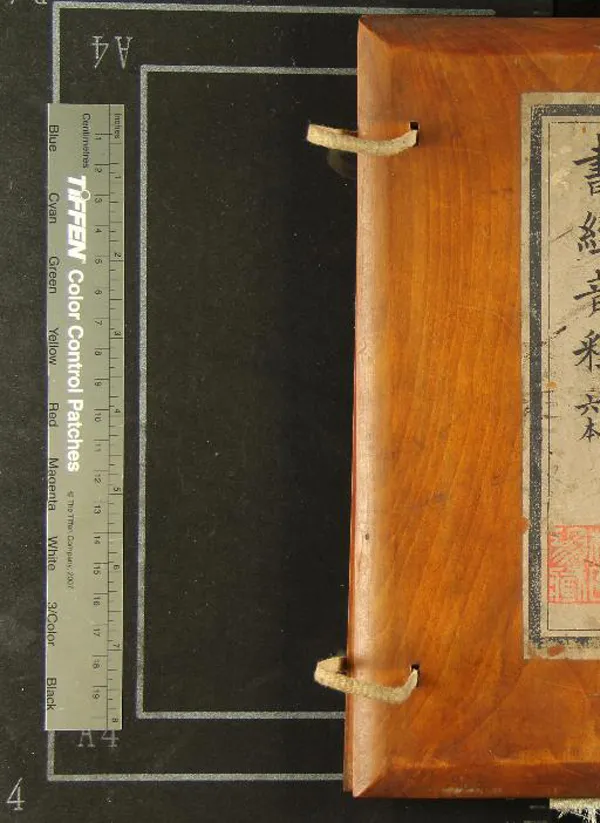 A4
Inches
1
2
3
4
5
6
7
8
Centimetres
1
2
3
4
5
6
7
8
9
10
11
12
13
14
15
16
17
18
19
TIFFEN™ Color Control Patches
© The Tiffen Company, 2007
Blue
Cyan
Green
Yellow
Red
Magenta
White
3/Color
Black
書經音釋
六本
A4
4